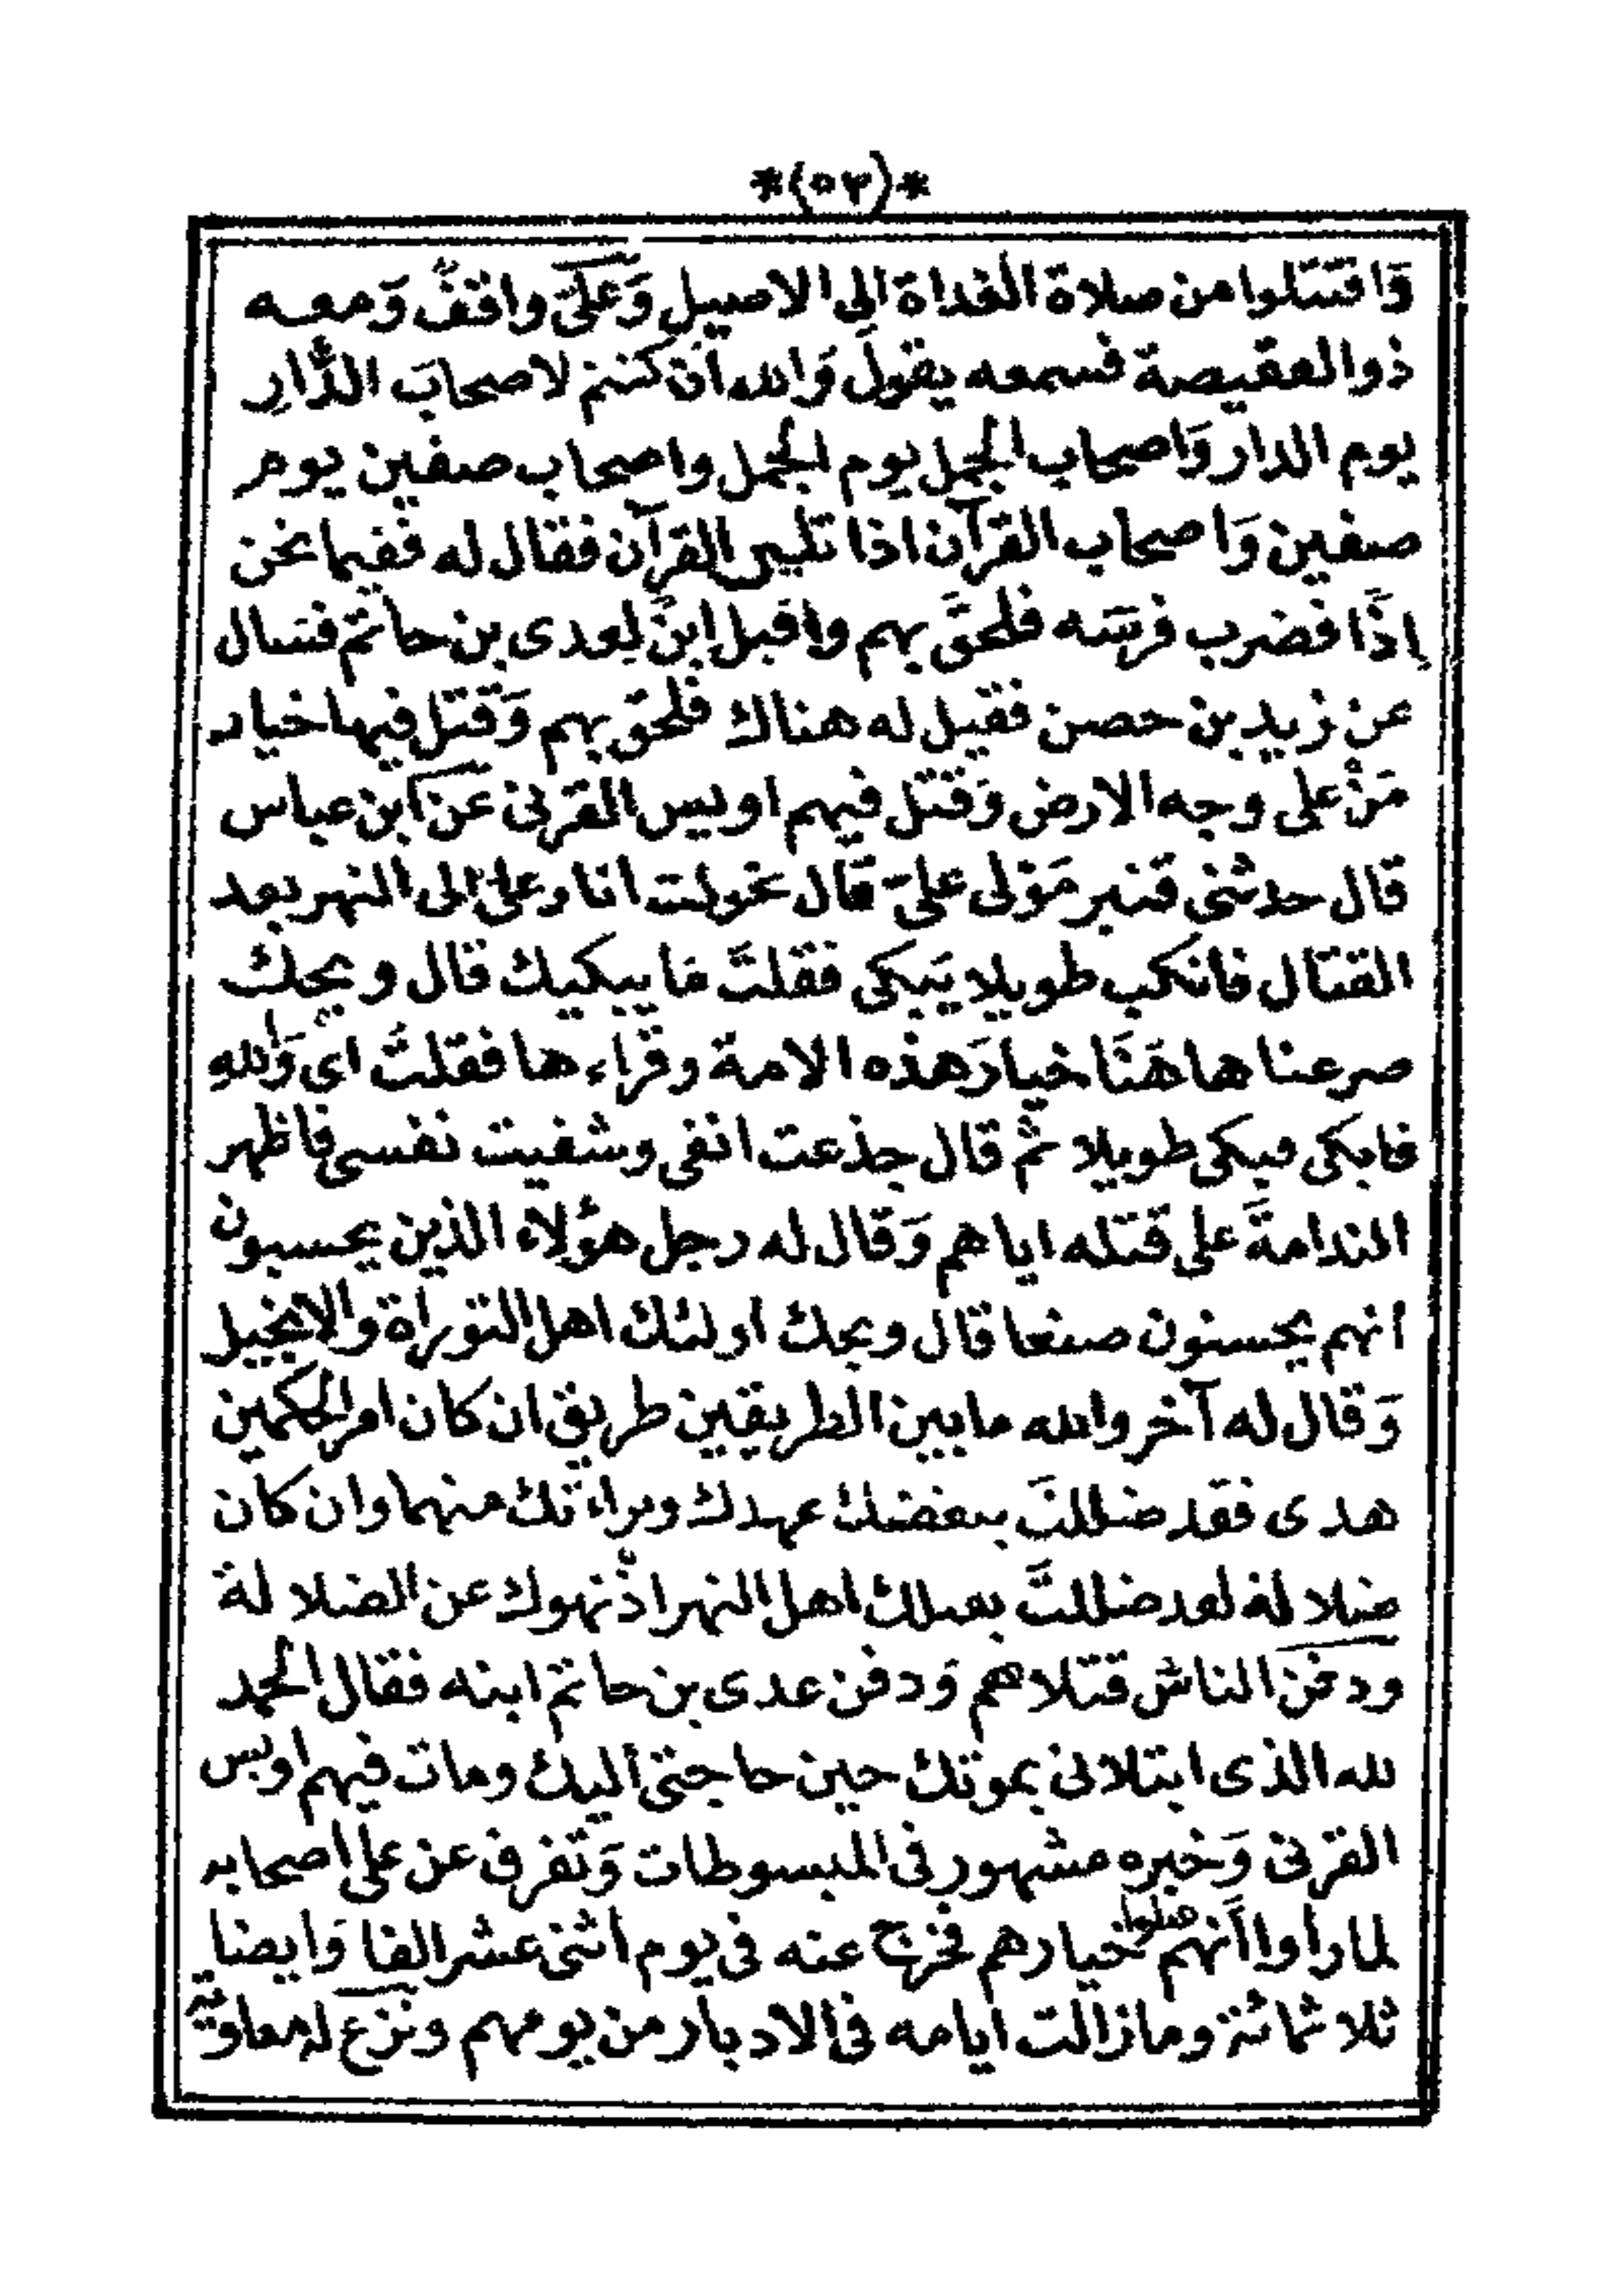 *(٥٣)*
وَاقتتلوا من صلاة الغداة الى الاصيل وَعَلىّ واقفٌ وَمعـه
ذو العقيصة فسمعه يقولَ وَالله ان كنتم لاصحابَ الدَّارِ
يوم الدار وَاصحاب الجمل يوم الجمل واصحاب صفين يوم
صفين وَاصحاب القرآن اذا تلى القرآن فقال له ففيما نحن
إِذًا فضرب فرسَه فلحقَ بهم واقبل ابنٌ لعدى بن حاتم فسال
عن زيد بن حصن فقيل له هناك فلحق بهم وَقتل فيها خيار
مَنْ على وجه الارض وَقتل فيهم اويس القرنى عَن ابن عباس
قال حدثنى قنبر مَوْلى علىّ قال تحولت انا وعلىّ الى النهر بعد
القتال فانكب طويلا يَبكى فقلتَ مَا يبكيك قال ويحك
صرعنا هاهَنَا خيارَ هذه الامة وقراءها فقلتُ اى وَاللهِ
فابكى فبكى طويلا ثُم قال جذعت انفى وشفيت نفسى فاظهر
الندامةَ على قَتله اياهم وَقال له رجل هؤلاء الذين يحسبون
انهم يحسنون صنعا قال ويحك اولئك اهل التوراة والانجيل
وَقال له آخر والله ما بين الطريقين طريق ان كان امر الحكمين
هدى فقد ضللتَ بنقضك عهدك وبراءتك منهما وان كان
ضلالة لقد ضللتَ بقتلك اهل النهر اذْ نهوك عن الضلالة
ودفنَ الناسُ قتلاهم وَدفن عدى بن حاتم ابنه فقال الحمد
لله الذى ابتلانى بموتك حين حاجتى اليك ومات فيهم اويس
القرنى وَخبره مشهور فى المبسوطات وَتفرق عن على اصحابه
لما راوا انهم قتلوا خيارهم فخرج عنه فى يوم اثنى عشر الفا وَايضا
ثلاثمائة وما زالت ايامه فى الادبار من يومهم ونزع له معاوية